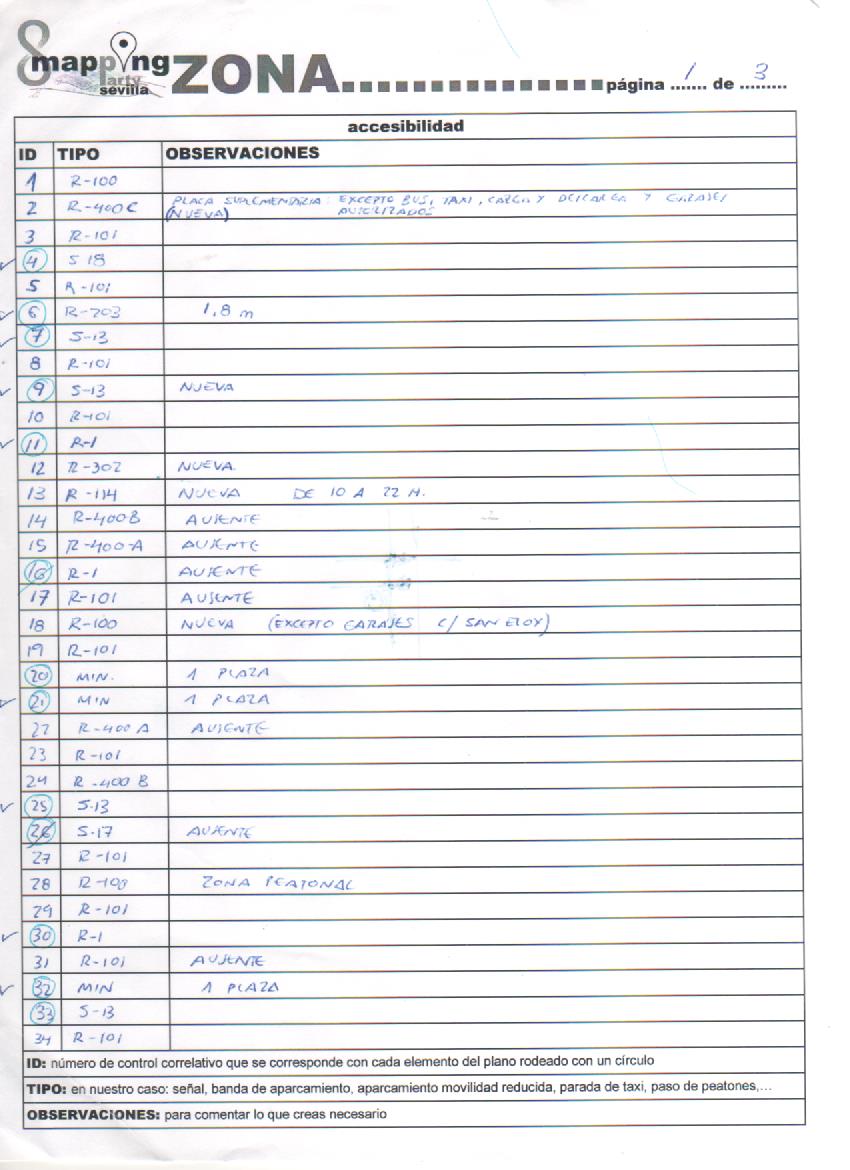 8 mapping party sevilla ZONA................ página 1 de 3
accesibilidad
ID TIPO OBSERVACIONES
1 R-100
2 R-400C PLACA SUPLEMENTARIA: EXCEPTO BUS, TAXI, CARGA Y DESCARGA Y GARAJES
(NUEVA) AUTORIZADOS
3 R-101
4 S 18
5 R-101
6 R-203 1,8 m
7 S-13
8 R-101
9 S-13 NUEVA
10 R-101
11 R-1
12 R-302 NUEVA.
13 R-114 NUEVA DE 10 A 22 H.
14 R-400B AUSENTE
15 R-400-A AUSENTE
16 R-1 AUSENTE
17 R-101 AUSENTE
18 R-100 NUEVA (EXCEPTO GARAJES C/ SAN ELOY)
19 R-101
20 MIN. 1 PLAZA
21 MIN 1 PLAZA
22 R-400 A AUSENTE
23 R-101
24 R-400 B
25 S-13
26 S-17 AUSENTE
27 R-101
28 R-100 ZONA PEATONAL
29 R-101
30 R-1
31 R-101 AUSENTE
32 MIN 1 PLAZA
33 S-13
34 R-101
ID: número de control correlativo que se corresponde con cada elemento del plano rodeado con un círculo
TIPO: en nuestro caso: señal, banda de aparcamiento, aparcamiento movilidad reducida, parada de taxi, paso de peatones,...
OBSERVACIONES: para comentar lo que creas necesario